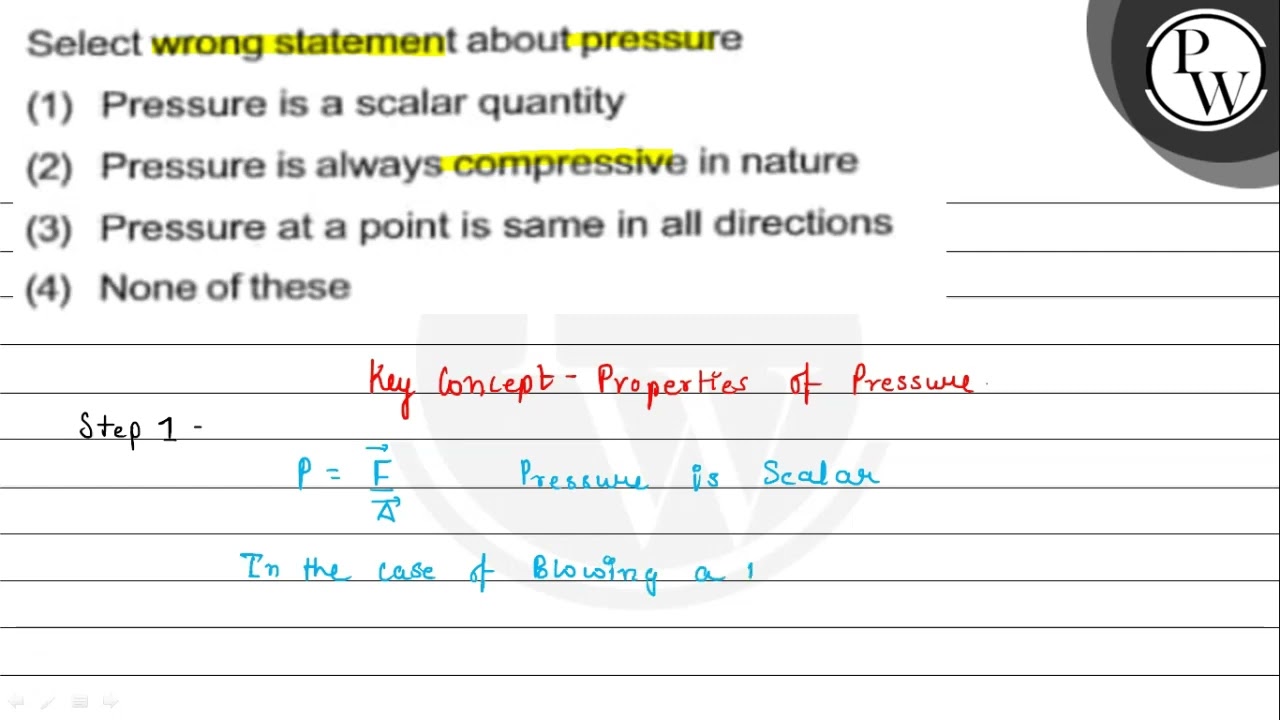 Select wrong statement about pressure
(1) Pressure is a scalar quantity
(2) Pressure is always compressive in nature
(3) Pressure at a point is same in all directions
(4) None of these
PW
Key Concept - Properties of Pressure.
Step 1 -
P = F⃗ / A⃗ Pressure is Scalar
In the case of Blowing a